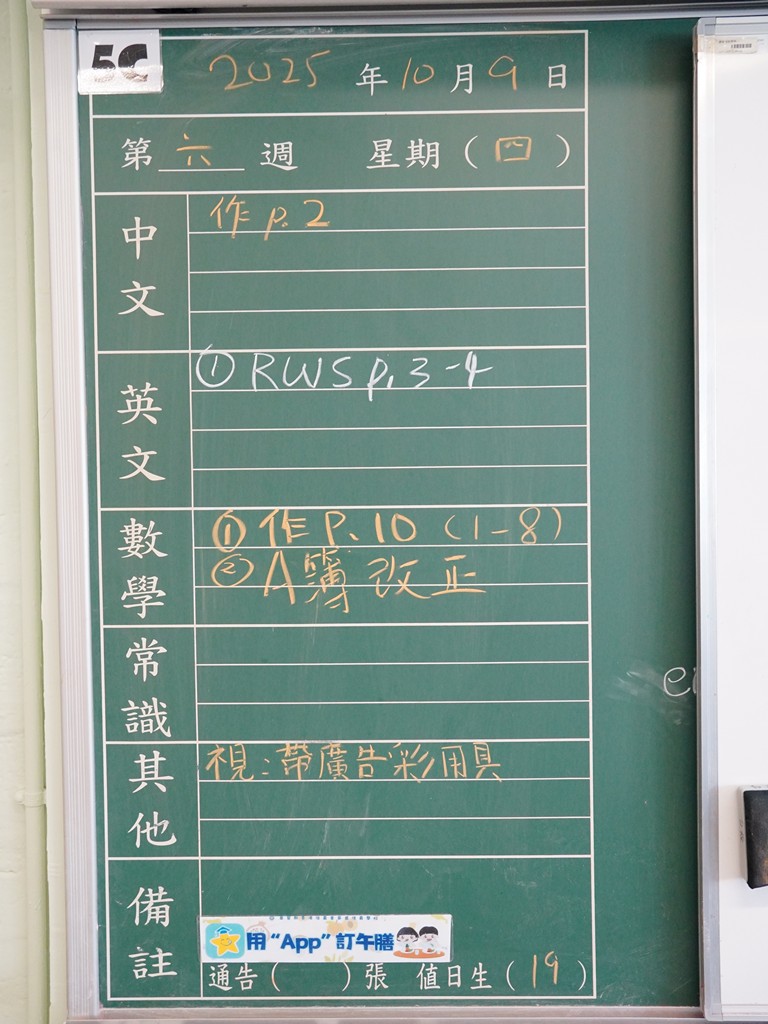 5C
2025 年 10 月 9 日
第 六 週 星期 ( 四 )
中文
作 p.2
英文
① RWS p.3-4
數學
① 作 P.10 (1-8)
② A簿 改正
常識
其他
視：帶廣告彩用具
備註
用 “App” 訂午膳
通告 ( ) 張 值日生 ( 19 )